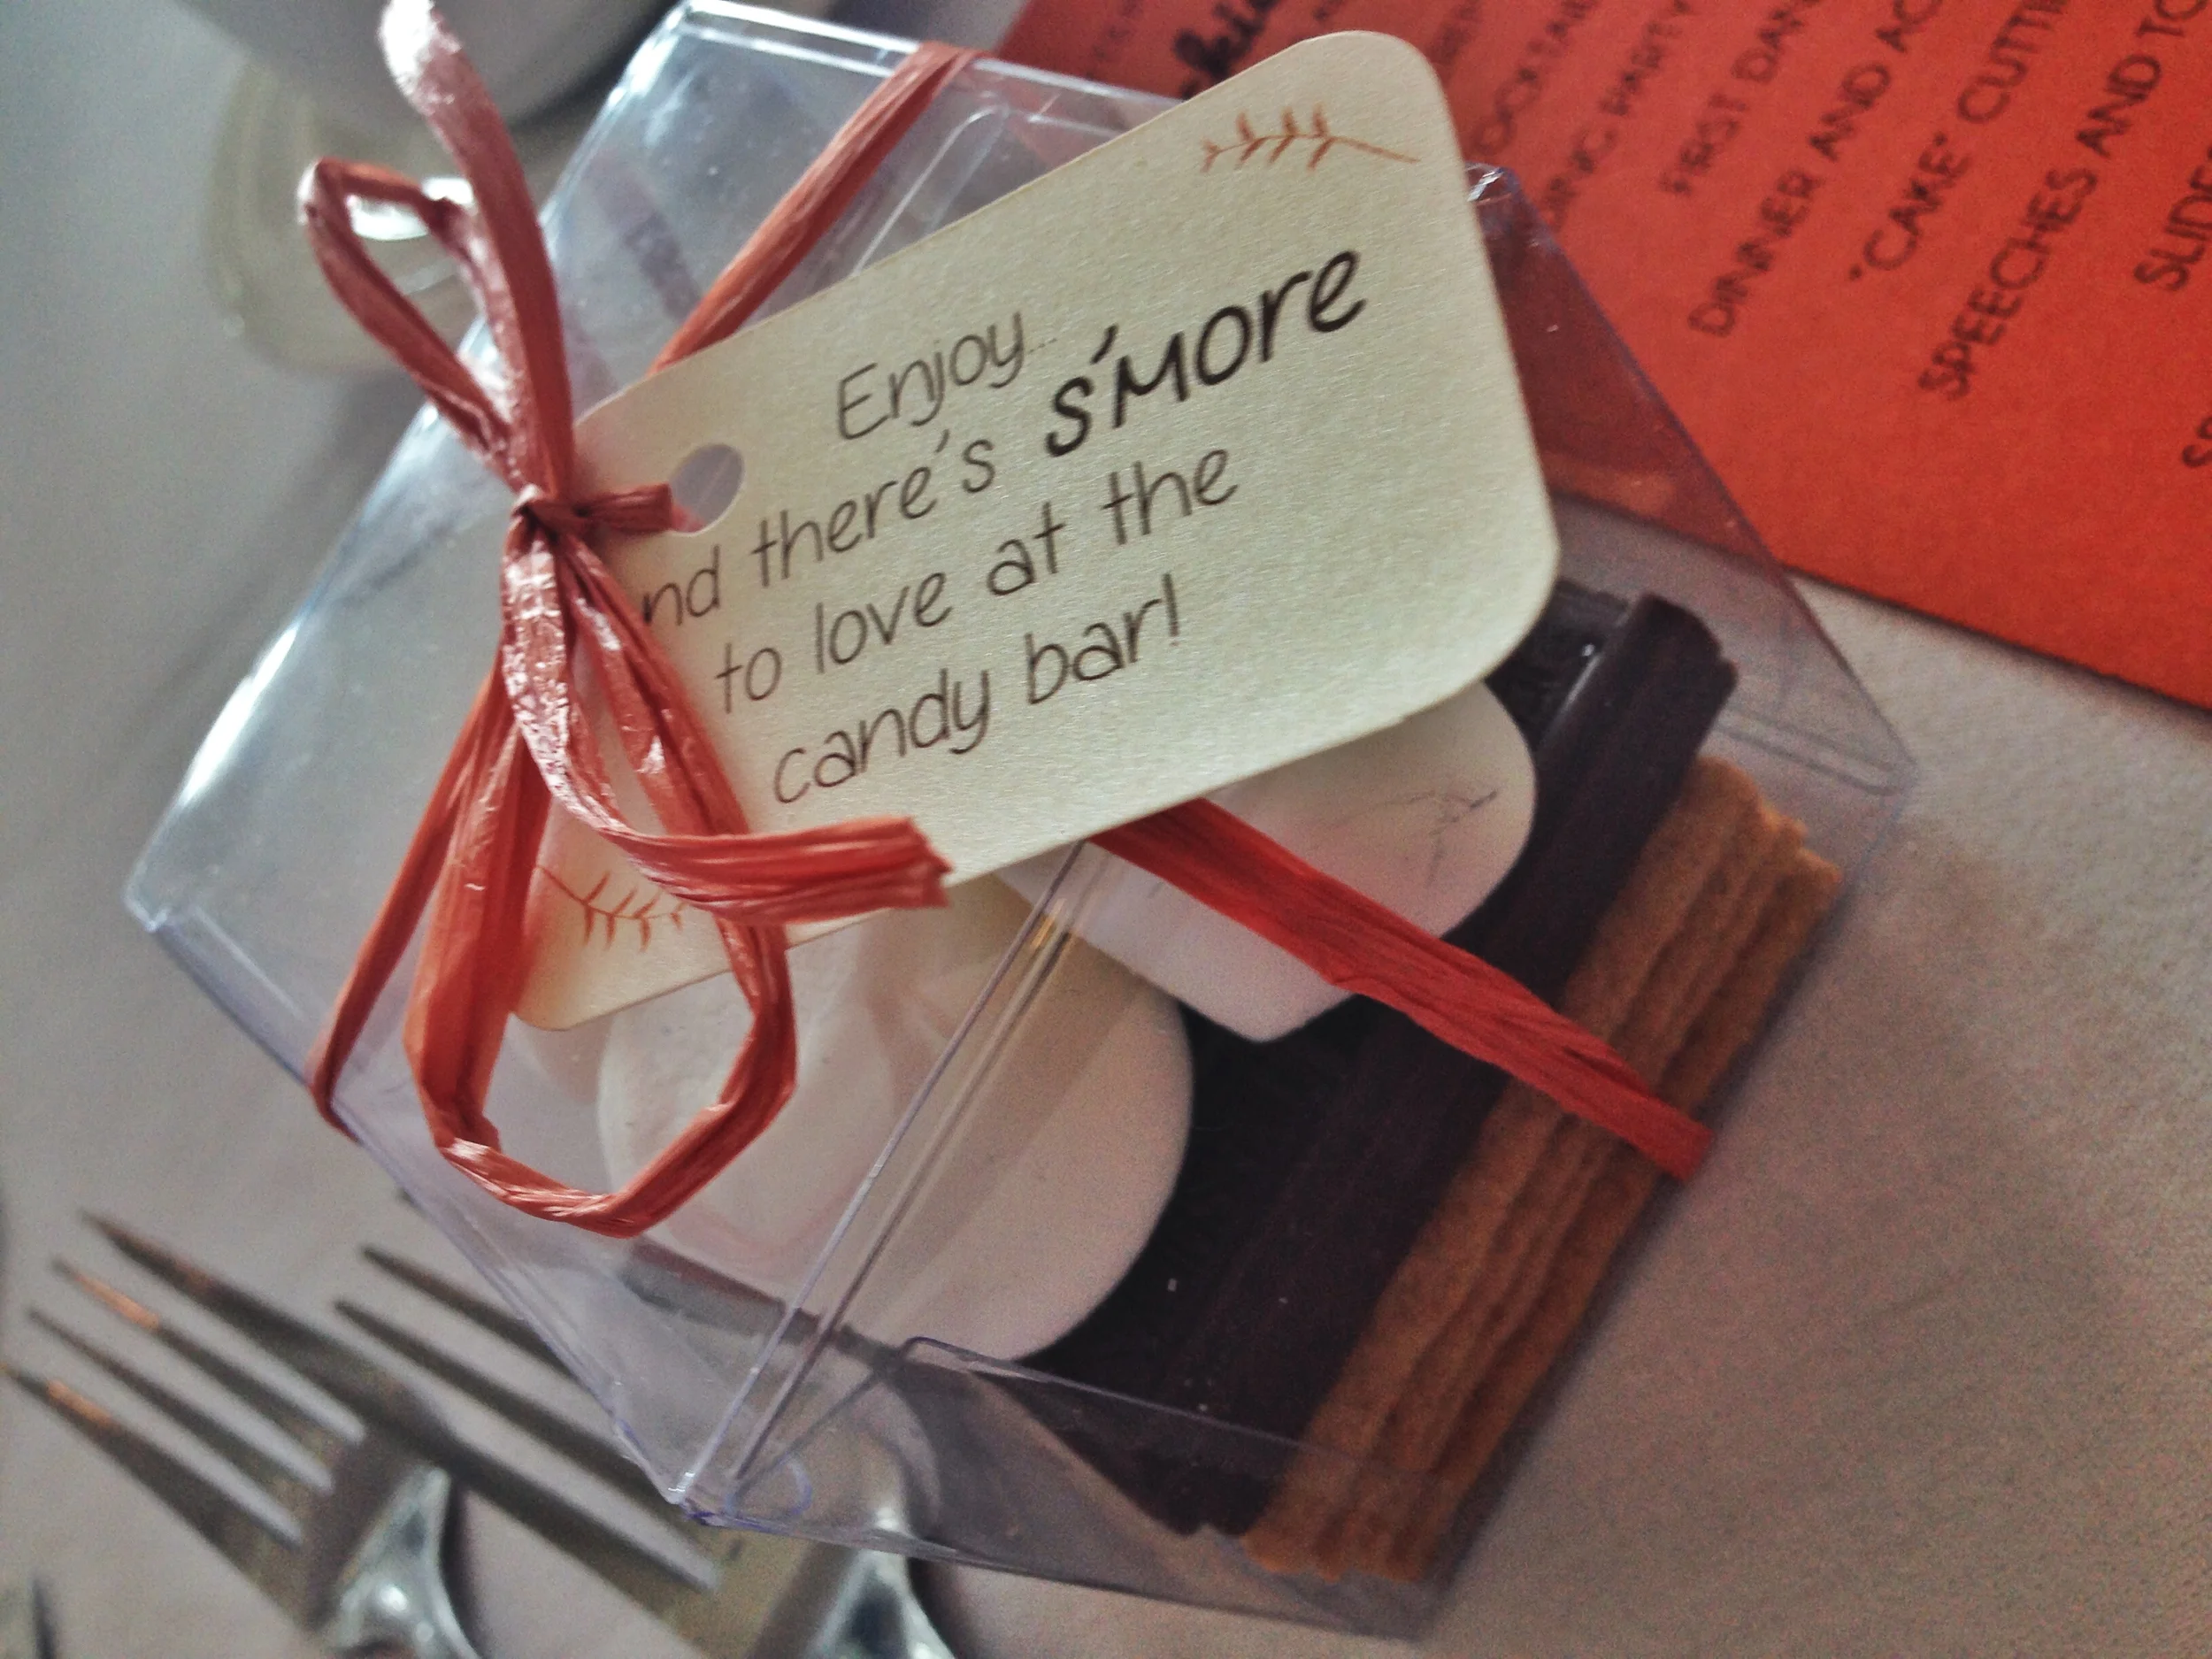 Enjoy...
nd there's s'more
to love at the
candy bar!
FIRST DAN
DINNER AND AC
"CAKE" CUTTI
SPEECHES AND TO
SLIDE